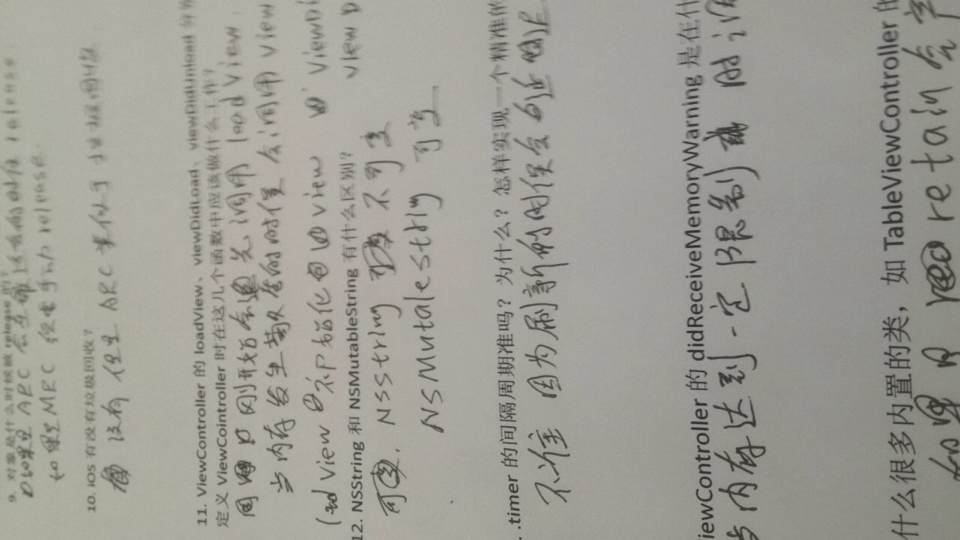 9. 对象是什么时候被 release 的?
如果是 ARC 会在 的时候 release
如果是MRC 需要手动 release.
10. iOS 有没有垃圾回收?
没有 但是 ARC 类似于 垃圾回收
11. ViewController 的 loadView、viewDidLoad、viewDidUnload 分别
定义 ViewCointroller 时在这几个函数中应该做什么工作?
刚开始会 先调用 load View
当内存发生警告的时候 会调用 view
load View 初始化 view ViewDi
12. NSString 和 NSMutableString 有什么区别?
view D
可变. NSString 不可变
NSMutalestrig 可变
. .timer 的间隔周期准吗? 为什么? 怎样实现一个精准的
不准 因为刷新的时候会 延迟
iewController 的 didReceiveMemoryWarning 是在什
当内存达到一定限制 时调
什么很多内置的类, 如 TableViewController 的
如果 retain 会产